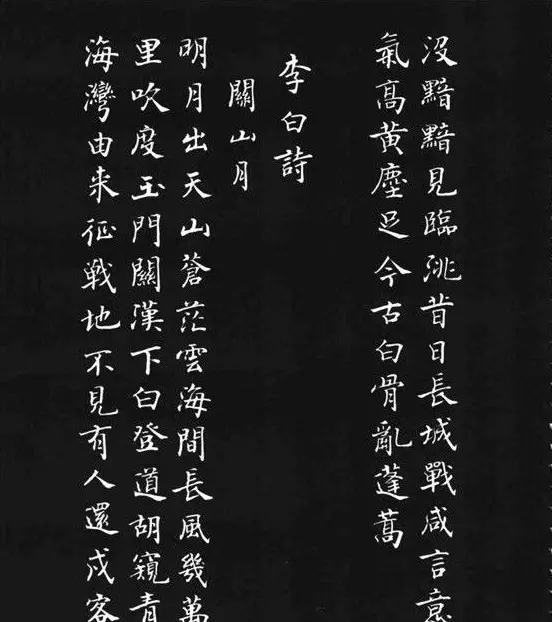 沒黯黯見臨洮昔日長城戰咸言意
氣高黃塵足今古白骨亂蓬蒿
李白詩
關山月
明月出天山蒼茫雲海間長風幾萬
里吹度玉門關漢下白登道胡窺青
海灣由来征戰地不見有人還戍客